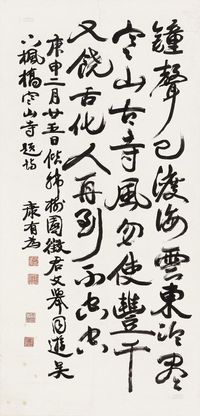 鐘聲已渡海雲東冷盡
寒山古寺風勿使豐干
又饒舌化人再到不空空
庚申二月廿五日偕韓樹園徵君文舉同遊吳
下楓橋寒山寺題詩 康有為